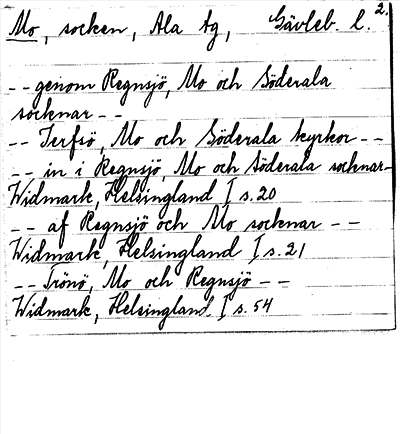 Mo, socken, Ala tg, Gävleb. l. 2.
-- genom Regnsjö, Mo och Söderala
socknar --
-- Terfsö, Mo och Söderala kyrkor --
-- in i Regnsjö, Mo och Söderala socknar-
Widmark, Helsingland I s. 20
-- af Regnsjö och Mo socknar --
Widmark, Helsingland I s. 21
-- Trönö, Mo och Regnsjö --
Widmark, Helsingland I s. 54